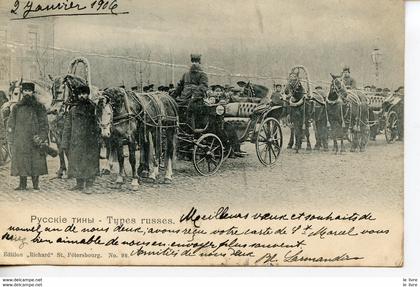 2 Janvier 1906
Types russes.
Русскіе типы - Types russes.
Meilleurs vœux et souhaits de
nouvel an de nous deux, avons reçu votre carte de St Marcel vous
seriez bien aimable de nous en envoyer plus souvent
Amitiés de nous deux
Edition „Richard“ St. Pétersbourg. No.